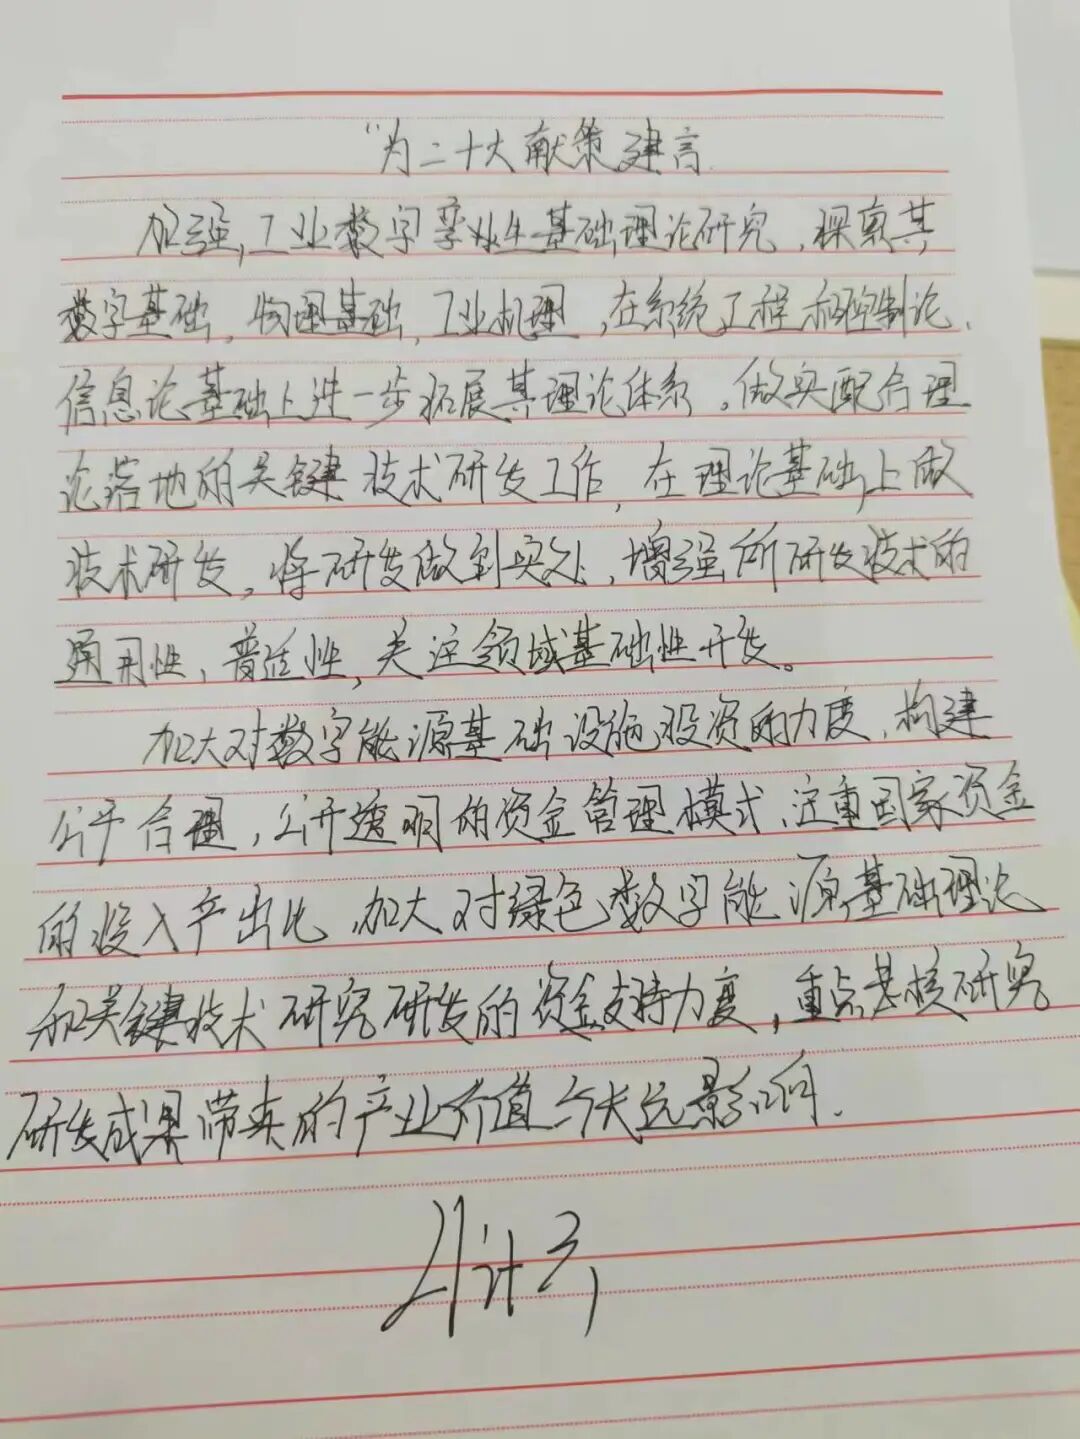 “为二十大献策建言
加强工业数字孪生基础理论研究，探索其
数字基础，物理基础，工业机理，在系统工程和控制论、
信息论基础上进一步拓展其理论体系。做实配合理
论落地的关键技术研发工作，在理论基础上做
技术研发，将研发做到实处，增强所研发技术的
通用性、普适性，关注领域基础性开发。
加大对数字能源基础设施投资的力度，构建
公平合理，公开透明的资金管理模式，注重国家资金
的投入产出比，加大对绿色数字能源基础理论
和关键技术研究研发的资金支持力度，重点考核研究
研发成果带来的产业价值与长远影响.